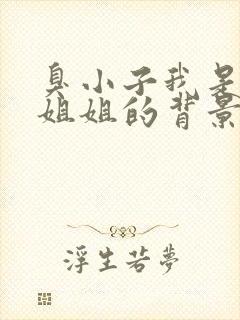 臭小子我是
姐姐的背景
浮生若夢